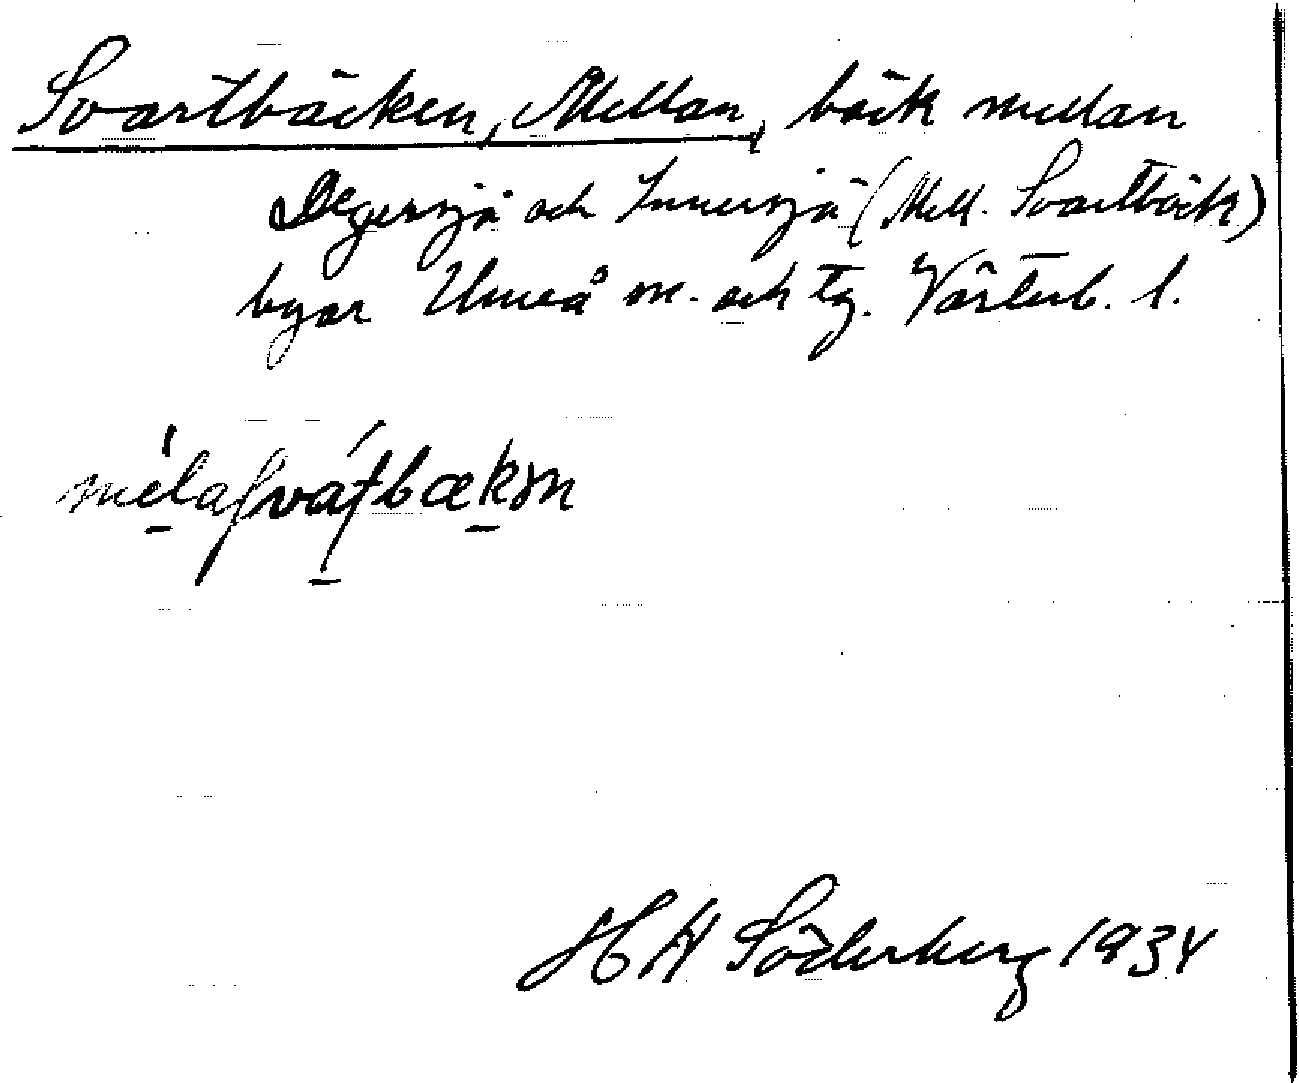 Svartbäcken, Mellan, bäck mellan
Degersjö och Innersjö (Mell. Svartbäck)
byar Umeå sn. och tg. Västerb. l.
mélaʃváʃtbækən
H Söderberg 1934